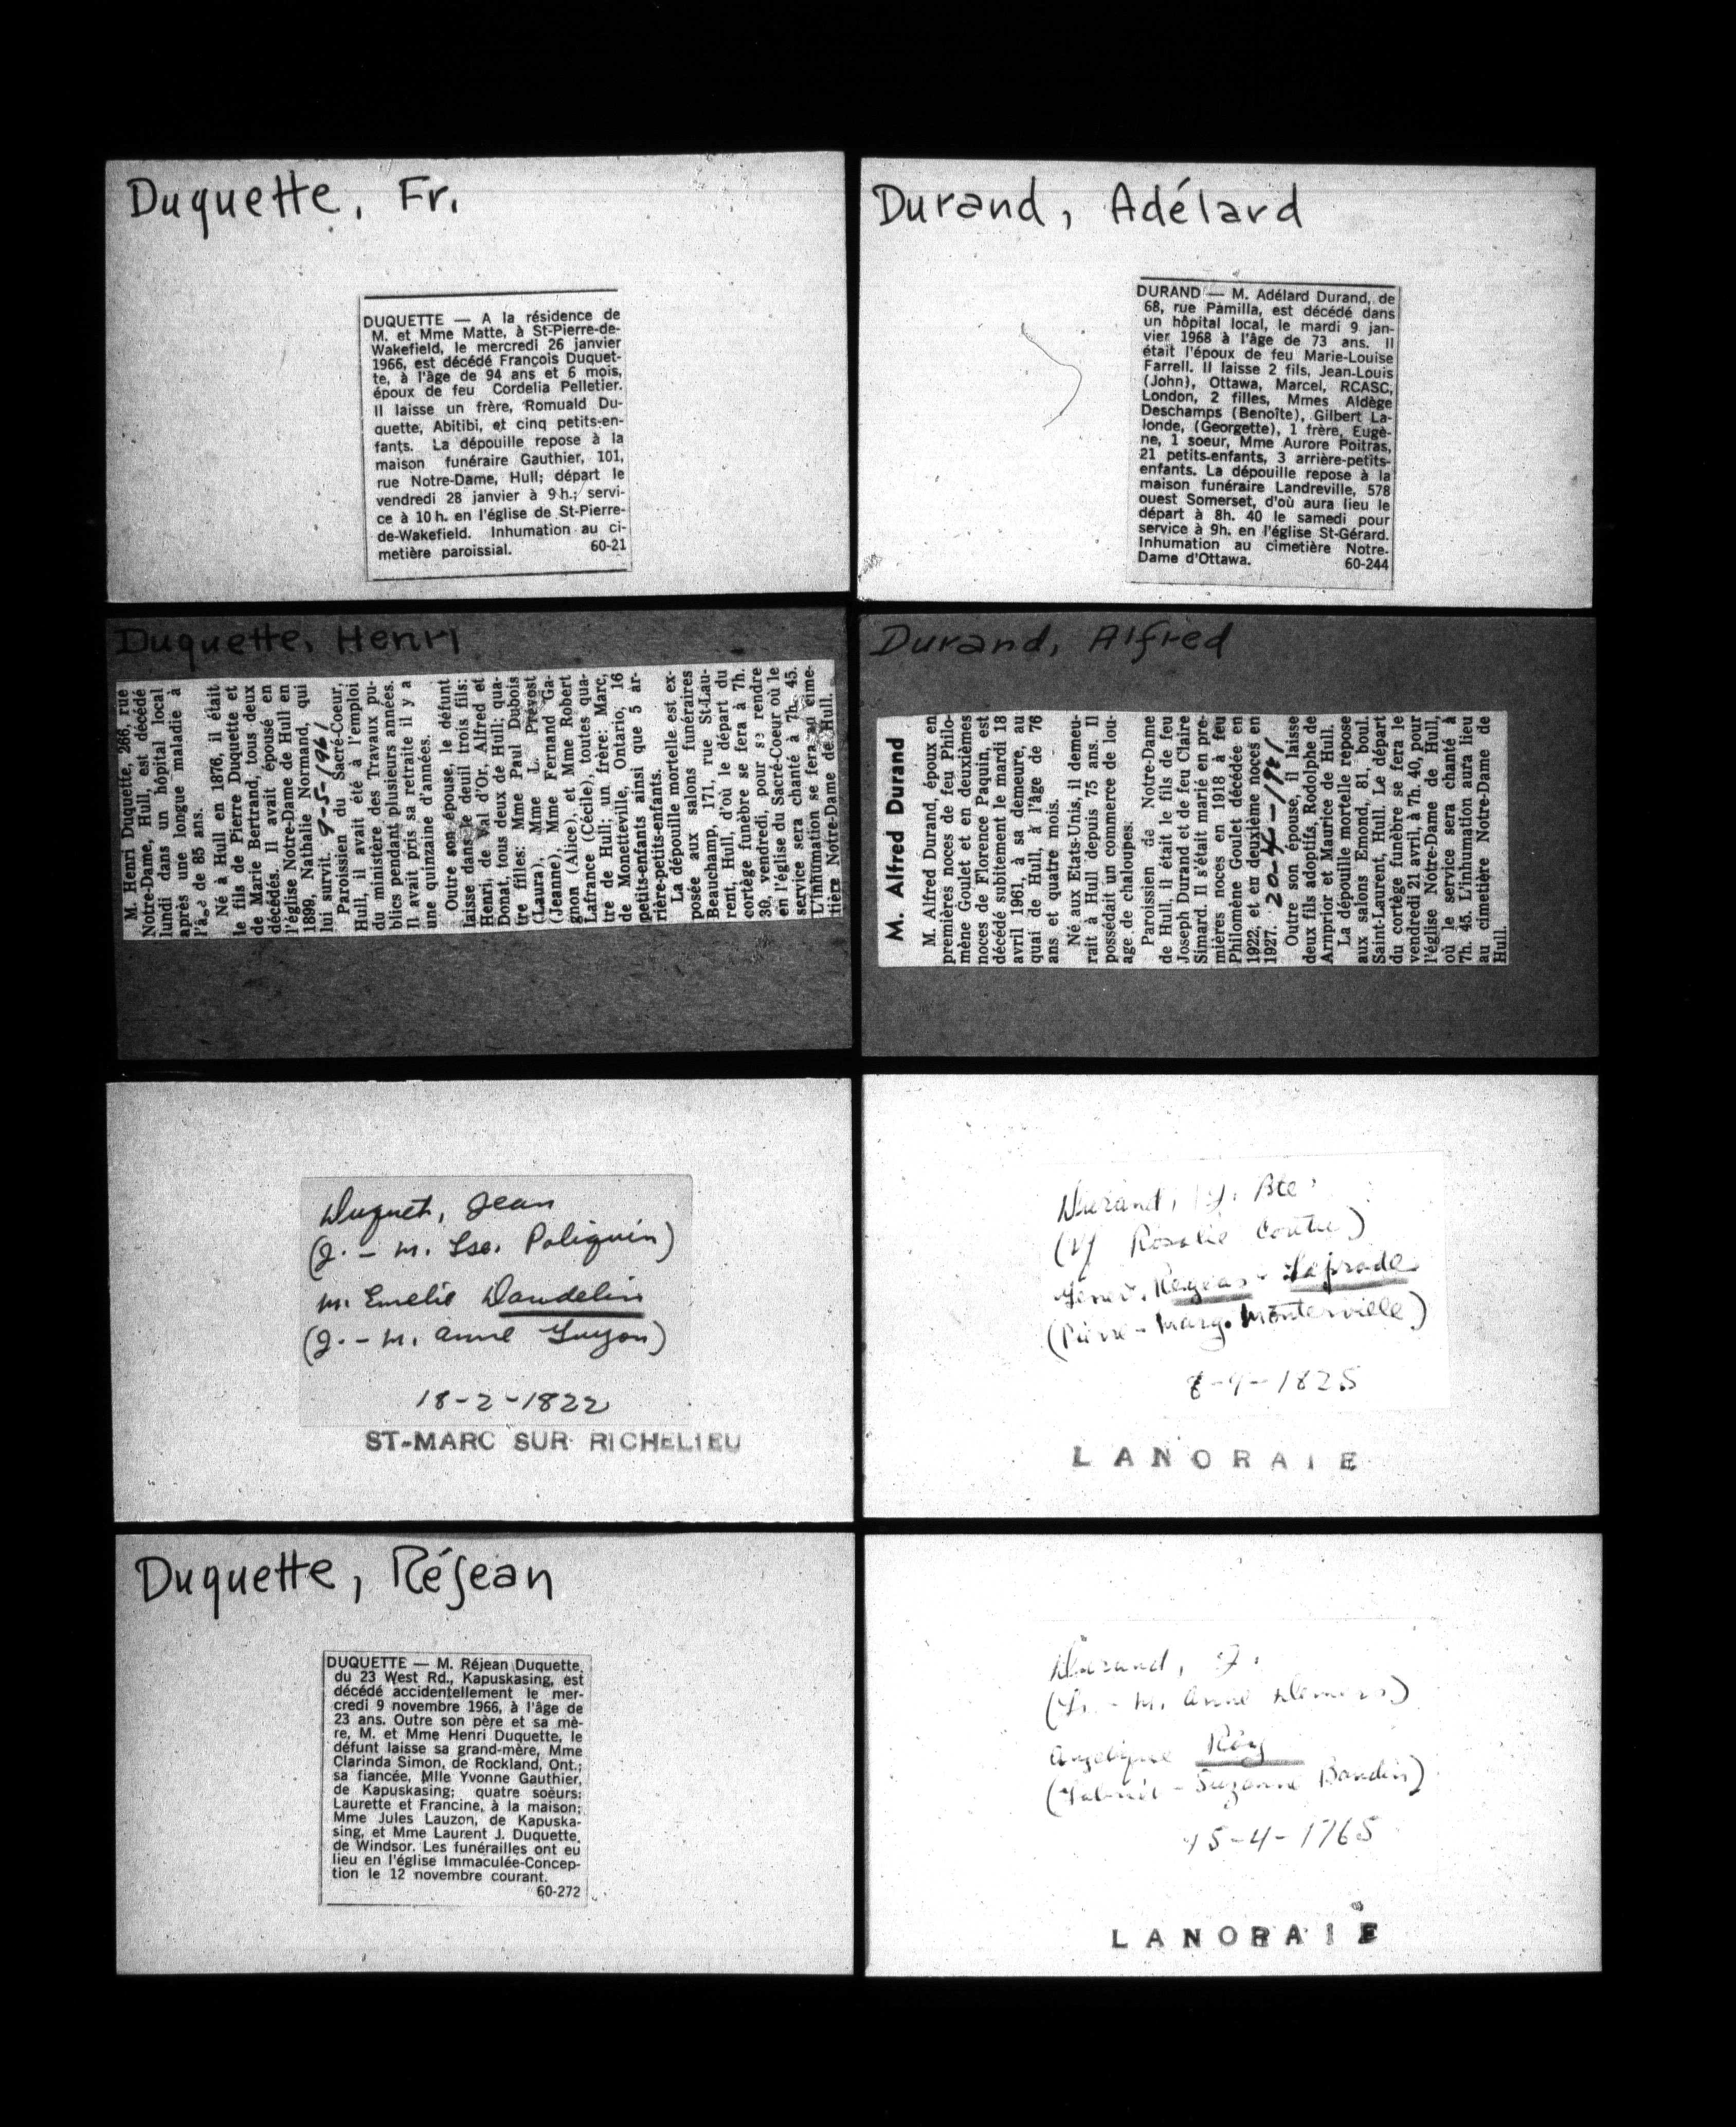 Duquette, Fr.
DUQUETTE — A la résidence de
M. et Mme Matte, à St-Pierre-de-
Wakefield, le mercredi 26 janvier
1966, est décédé François Duquet-
te, à l'âge de 94 ans et 6 mois,
époux de feu Cordelia Pelletier.
Il laisse un frère, Romuald Du-
quette, Abitibi, et cinq petits-en-
fants. La dépouille repose à la
maison funéraire Gauthier, 101,
rue Notre-Dame, Hull; départ le
vendredi 28 janvier à 9 h.; servi-
ce à 10 h. en l'église de St-Pierre-
de-Wakefield. Inhumation au ci-
metière paroissial. 60-21
Durand, Adélard
DURAND — M. Adélard Durand, de
68, rue Pamilla, est décédé dans
un hôpital local, le mardi 9 jan-
vier 1968 à l'âge de 73 ans. Il
était l'époux de feu Marie-Louise
Farrell. Il laisse 2 fils, Jean-Louis
(John), Ottawa, Marcel, RCASC,
London, 2 filles, Mmes Aldège
Deschamps (Benoîte), Gilbert La-
londe, (Georgette), 1 frère, Eugè-
ne, 1 soeur, Mme Aurore Poitras,
21 petits-enfants, 3 arrière-petits-
enfants. La dépouille repose à la
maison funéraire Landreville, 578
ouest Somerset, d'où aura lieu le
départ à 8h. 40 le samedi pour
service à 9h. en l'église St-Gérard.
Inhumation au cimetière Notre-
Dame d'Ottawa. 60-244
Duquette, Henri
M. Henri Duquette, 266, rue
Notre-Dame, Hull, est décédé
lundi dans un hôpital local
après une longue maladie à
l'âge de 85 ans.
Né à Hull en 1876, il était
le fils de Pierre Duquette et
de Marie Bertrand, tous deux
décédés. Il avait épousé en
l'église Notre-Dame de Hull en
1899, Nathalie Normand, qui
lui survit. 9-5-1961
Paroissien du Sacré-Coeur,
Hull, il avait été à l'emploi
du ministère des Travaux pu-
blics pendant plusieurs années.
Il avait pris sa retraite il y a
une quinzaine d'années.
Outre son épouse, le défunt
laisse dans le deuil trois fils:
Henri, de Val d'Or, Alfred et
Donat, tous deux de Hull; qua-
tre filles: Mme Paul Dubois
(Laura), Mme L. Prévost
(Jeanne), Mme Fernand Ga-
gnon (Alice), et Mme Robert
Lafrance (Cécile), toutes qua-
tre de Hull; un frère: Marc,
de Monetteville, Ontario, 16
petits-enfants ainsi que 5 ar-
rière-petits-enfants.
La dépouille mortelle est ex-
posée aux salons funéraires
Beauchamp, 171, rue St-Lau-
rent, Hull, d'où le départ du
cortège funèbre se fera à 7h.
30, vendredi, pour se rendre
en l'église du Sacré-Coeur où le
service sera chanté à 7h. 45.
L'inhumation se fera au cime-
tière Notre-Dame de Hull.
Durand, Alfred
M. Alfred Durand
M. Alfred Durand, époux en
premières noces de feu Philo-
mène Goulet et en deuxièmes
noces de Florence Paquin, est
décédé subitement le mardi 18
avril 1961, à sa demeure, au
quai de Hull, à l'âge de 76
ans et quatre mois.
Né aux Etats-Unis, il demeu-
rait à Hull depuis 75 ans. Il
possédait un commerce de lou-
age de chaloupes.
Paroissien de Notre-Dame
de Hull, il était le fils de feu
Joseph Durand et de feu Claire
Simard. Il s'était marié en pre-
mières noces en 1918 à feu
Philomène Goulet décédée en
1922, et en deuxième noces en
1927. 20-4-1961
Outre son épouse, il laisse
deux fils adoptifs, Rodolphe de
Arnprior et Maurice de Hull.
La dépouille mortelle repose
aux salons Emond, 81, boul.
Saint-Laurent, Hull. Le départ
du cortège funèbre se fera le
vendredi 21 avril, à 7h. 40, pour
l'église Notre-Dame de Hull,
où le service sera chanté à
7h. 45. L'inhumation aura lieu
au cimetière Notre-Dame de
Hull.
Duquet, Jean
(J. - M. Lse. Poliquin)
m. Emelie Daudelin
(J. - M. Anne Guyon)
18-2-1822
ST-MARC SUR RICHELIEU
Durand, J. Bte
(Vf Rosalie Coutu)
Genev. Regeas - Laprade
(Pierre - Marg. Monterville)
8-9-1825
LANORAIE
Duquette, Réjean
DUQUETTE — M. Réjean Duquette,
du 23 West Rd., Kapuskasing, est
décédé accidentellement le mer-
credi 9 novembre 1966, à l'âge de
23 ans. Outre son père et sa mè-
re, M. et Mme Henri Duquette, le
défunt laisse sa grand-mère, Mme
Clarinda Simon, de Rockland, Ont.;
sa fiancée, Mlle Yvonne Gauthier,
de Kapuskasing; quatre soeurs:
Laurette et Francine, à la maison;
Mme Jules Lauzon, de Kapuska-
sing, et Mme Laurent J. Duquette,
de Windsor. Les funérailles ont eu
lieu en l'église Immaculée-Concep-
tion le 12 novembre courant.
60-272
Durand, J.
(L. - M. Anne Demers)
Angelique Roy
(Gabriel - Suzanne Baudin)
15-4-1765
LANORAIE